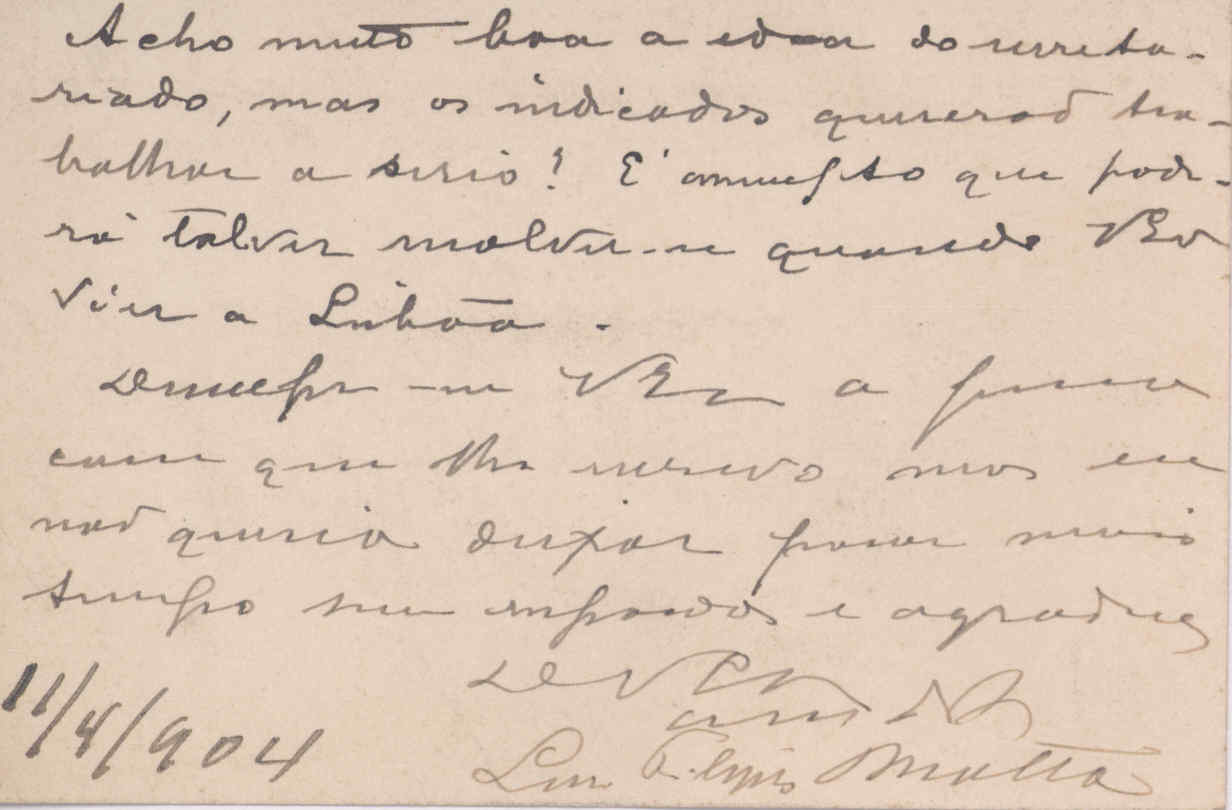 Acho muito boa a idea do secreta-
riado, mas os indicados quererão tra-
balhar a serio? E' assumpto que pode-
rá talvez resolver-se quando VExª
vier a Lisboa.
Desculpe-me VExª a forma
como que lhe escrevo mas eu
não queria deixar passar mais
tempo sem responder e agradecer
De VExª
Luis Filippe Matta
11/4/904